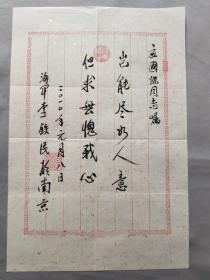 立國兄同志囑
岂能尽如人意
但求無愧我心
二〇一〇年元月八日
海軍李鉄民於南京